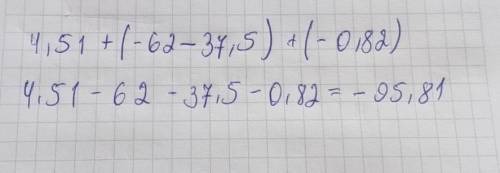 4,51 + (-62 - 37,5) + (- 0,82)
4,51 - 62 - 37,5 - 0,82 = - 95,81